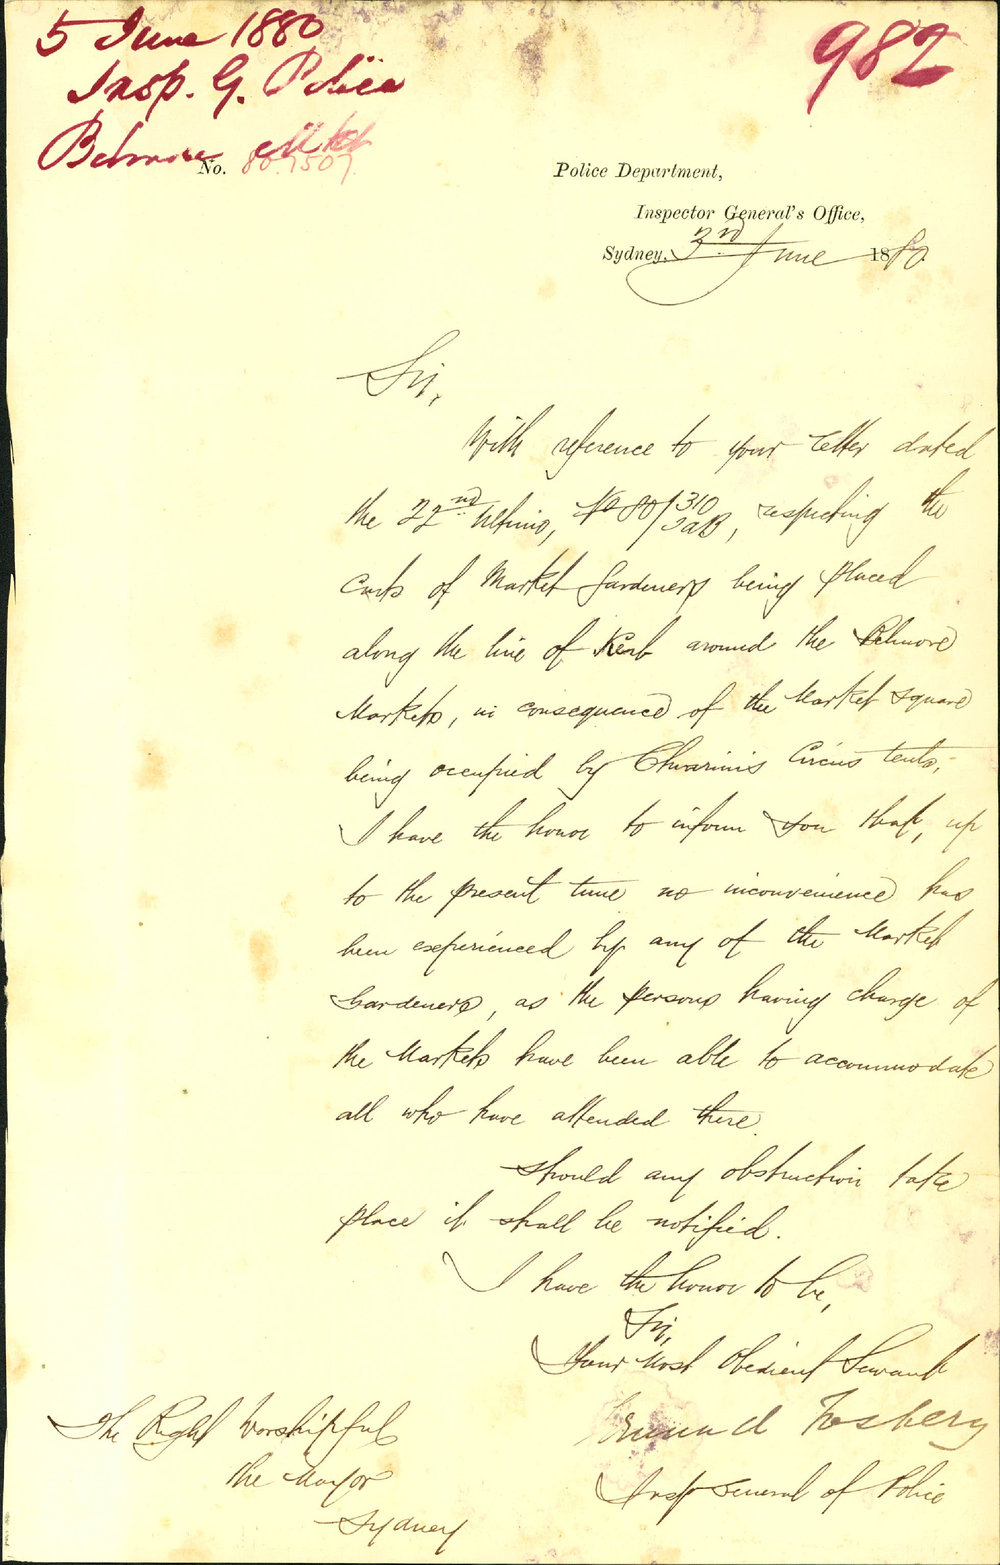 5 June 1880
Insp. G. Police
Belmore Mkt
982
No. 80.7507.
Police Department,
Inspector General's Office,
Sydney, 3rd June 1880.
Sir,
With reference to your letter dated
the 22nd Ultimo, No 80/310, respecting the
Carts of Market Gardeners being placed
along the line of Kerb around the Belmore
Markets, in consequence of the Market Square
being occupied by Chiarinis Circus tents,
I have the honor to inform you that, up
to the present time no inconvenience has
been experienced by any of the Market
Gardeners, as the persons having charge of
the Markets have been able to accommodate
all who have attended there.
Should any obstruction take
place it shall be notified.
I have the honor to be,
Sir,
Your Most Obedient Servant
Edmund Fosbery
Insp General of Police
The Right Worshipful
the Mayor
Sydney